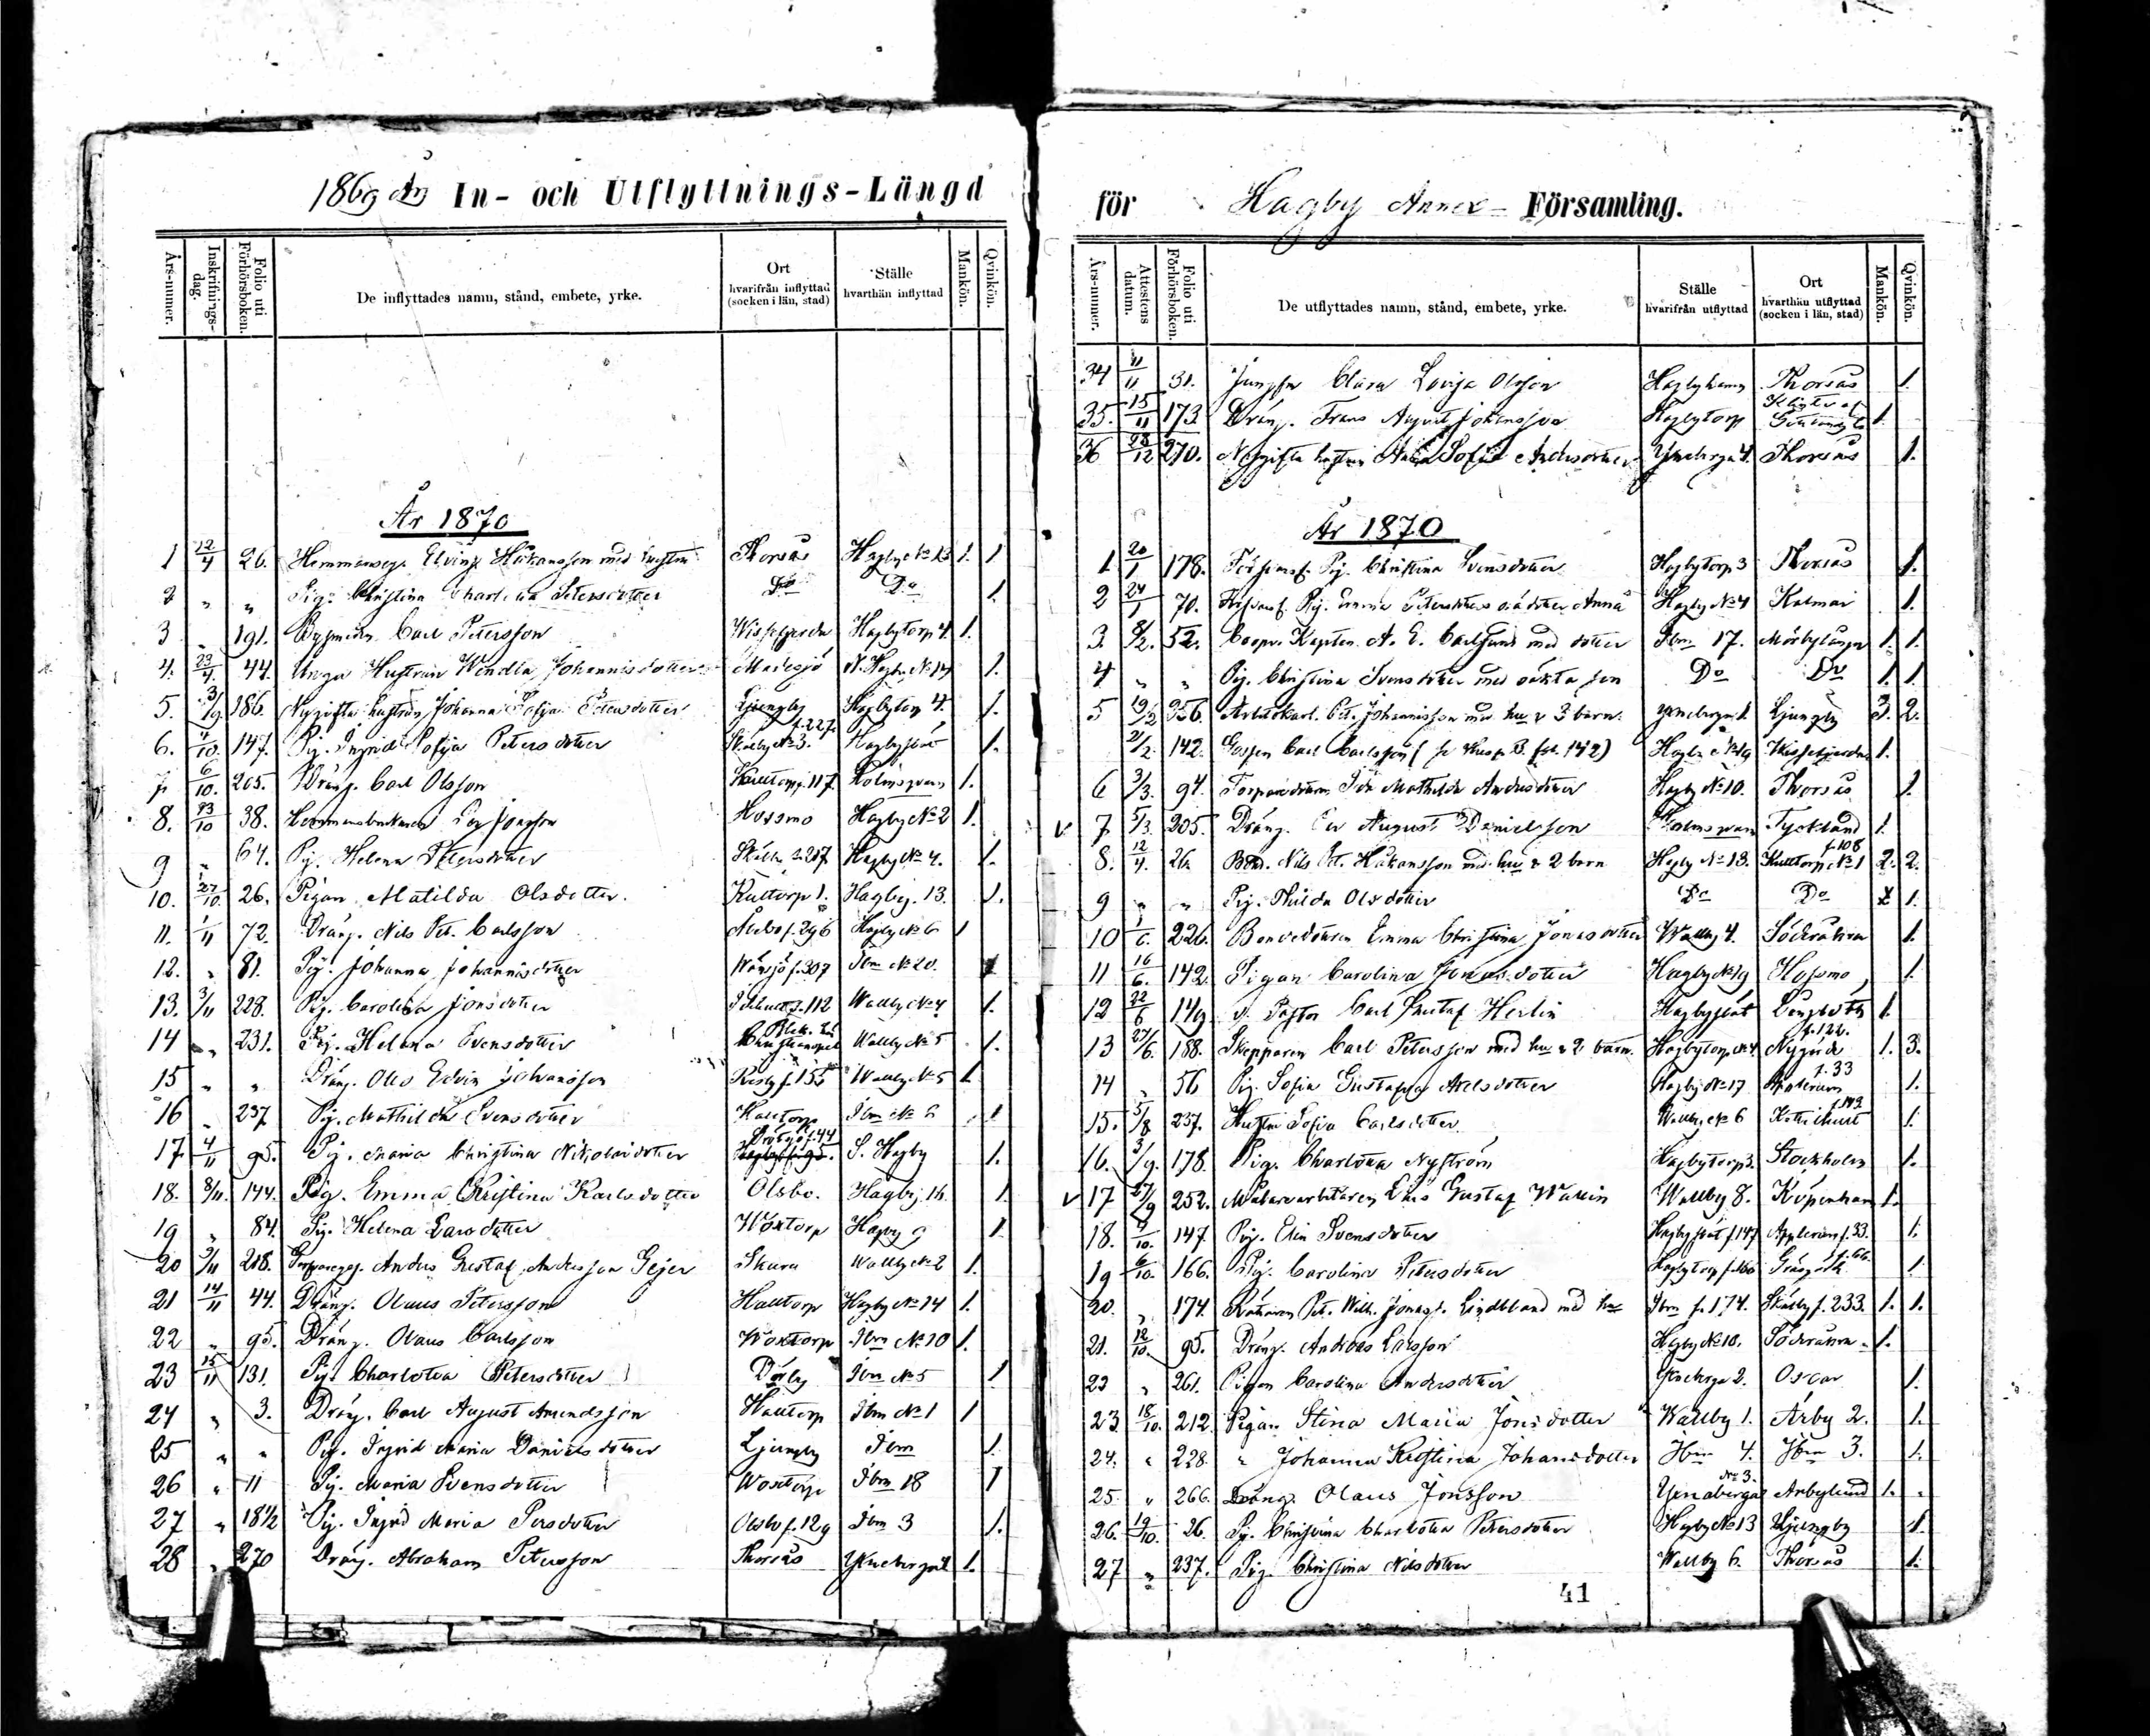 1869 års In- och Utflyttnings-Längd
Års-numer.
Inskrifnings-dag.
Folio uti Förhörsboken.
De inflyttades namn, stånd, embete, yrke.
Ort hvarifrån inflyttad (socken i län, stad)
Ställe hvarthän inflyttad
Mankön.
Qvinkön.
År 1870
1 12/4 26. Hemmanseg. Håkansson med hustru Thorsås Hagby No 13 1. 1
2 " " Pig. Christina Charlotta Petersdotter Do Do 1.
3 " 191. Carl Petersson Wissefjerda Hagbytorp 4. 1.
4. 23/4. 44. Unga Hustrun Wendla Johannisdotter Madesjö N. Hagby No 14 1.
5. 3/9 186. Nygifta hustrun Johanna Sofija Petersdotter Ljungby Hagbytorp 4. 1.
6. 4/10. 147. Pig. Ingrid Sofija Petersdotter f. 227. No 3. 1.
7 6/10. 205. Dräng. Carl Olsson f. 117. 1.
8. 13/10 38. Jonsson Hossmo Hagby No 2 1.
9 " 64. Pig. Helena Petersdotter f. 207 Hagby No 4. 1.
10. 27/10. 26. Pigan Matilda Olsdotter. Kulltorp 1. Hagby. 13. 1.
11. 1/11 72. Dräng. Nils Pet. Carlsson f. 296 Hagby No 6 1
12. " 81. Pig. Johanna Johannisdotter f. 307 Ibm No 20. 1
13. 3/11 228. Pig. Carolina Jonsdotter f. 112 Wallby No 4 1.
14 " 231. Pig. Helena Svensdotter Blek. Län Christianopel Wallby No 5 1.
15 " " Dräng. Edvin Johansson f. 155 Wallby No 5 1
16 " 237 Pig. Mathilda Svensdotter Halltorp Ibm No 6 1
17. 4/11 95. Pig. Maria Christina Nikolaidotter f. 44 S. Hagby 1.
18. 8/11. 144. Pig. Emma Kristina Karlsdotter Olsbo. Hagby. 16. 1.
19 " 84. Pig. Helena Larsdotter Woxtorp Hagby 9 1
20 9/11 218. Anders Gustaf Andersson Gejer Skura Wallby No 2 1.
21 14/11 44. Dräng. Olaus Petersson Halltorp Hagby No 14 1.
22 " 95. Dräng. Olaus Carlsson Woxtorp Ibm No 10 1.
23 15/11 131. Pig. Charlotta Petersdotter Dörby Ibm No 5 1
24 " 3. Dräng. Carl August Amundsson Halltorp Ibm No 1 1
25 " " Pig. Ingrid Maria Danielsdotter Ljungby Ibm 1.
26 " 11 Pig. Maria Svensdotter Woxtorp Ibm 18 1
27 " 18 1/2 Pig. Ingrid Maria Persdotter Olsbo f. 129 Ibm 3 1.
28 " 270 Dräng. Abraham Petersson Thorsås 1.
för Hagby Annex-Församling.
Års-numer.
Attestens datum.
Folio uti Förhörsboken.
De utflyttades namn, stånd, embete, yrke.
Ställe hvarifrån utflyttad
Ort hvarthän utflyttad (socken i län, stad)
Mankön.
Qvinkön.
34 11/11 31. Jungfru Clara Lovisa Olsson Hagbyhamn Thorsås 1.
35. 15/11 173. Dräng. Frans August Johansson Hagbytorp 1.
36 28/12 270. Nygifta hustrun Anna Sofia Andersdotter Yneberga 4. Thorsås 1.
År 1870
1. 20/1 178. Pig. Christina Svensdotter Hagbytorp 3 Thorsås 1.
2 24/1 70. Pig. Emma Petersdotters Anna Hagby No 4 Kalmar 1.
3. 8/2. 52. Coopv. Kapten A. E. Carlsund med dotter Ibm 17. Mörbylånga 1. 1.
4 " " Pig. Christina Svensdotter med oäkta son Do Do 1. 1.
5 19/2 256. Pet. Johannisson med hu o 3 barn. Yneberga 1. Ljungby 3. 2.
21/2. 142. Gossen Carl Carlsson (se Husf. B. fol. 142) Hagby No 19 Wissefjerda 1.
6 3/3. 94. Ida Mathilda Andersdotter Hagby No 10. Thorsås 1.
v 7 5/3. 205. Dräng. Per August Danielsson Tyskland 1.
8. 12/4. 26. Nils Pet. Håkansson med hu o 2 barn Hagby No 13. Kulltorp No 1 f. 108 2. 2.
9 " " Pig. Thilda Olsdotter Do Do 1.
10 1/6. 226. Bondedottern Emma Christina Jonsdotter Wallby 4. Söderåkra 1.
11 16/6. 142. Pigan Carolina Jonasdotter Hagby No 19 Hossmo 1
12 22/6 149. v. Pastor Carl Gustaf Herlin 1.
13 27/6. 188. Skepparen Carl Petersson med hu o 2 barn. Hagbytorp No 4 f. 122. 1. 3.
14 " 56 Pig. Sofia Gustafva Axelsdotter Hagby No 17 f. 33 1.
15. 5/8 237. Sofia Carlsdotter. Wallby No 6 f. 143. 1.
16. 3/9. 178. Pig. Charlotta Nyström Hagbytorp 3. Stockholm 1.
v 17 27/9 252. Lars Gustaf Wallin Wallby 8. Köpenhamn 1.
18. 3/10. 147. Pig. Elin Svensdotter f. 147 Applerum f. 33. 1.
19 6/10. 166. Pig. Carolina Petersdotter Hagbytorp f. 166 f. 66. 1.
20. " 174 Pet. Wilh. Jonass. Lindblad med hu Ibm f. 174. f. 233. 1. 1.
21. 12/10. 95. Dräng. Andreas Larsson Hagby No 10. Söderåkra 1.
22 " 261. Pigan Carolina Andersdotter Yneberga 2. Oscar 1.
23 18/10. 212. Pigan Stina Maria Jonsdotter Wallby 1. Arby 2. 1.
24. " 228. " Johanna Kristina Johansdotter Ibm 4. Ibm 3. 1.
25. " 266. Dräng. Olaus Jonsson Yneberga No 3. Arbylund 1.
26. 19/10. 26. Pig. Christina Charlotta Petersdotter Hagby No 13 Ljungby 1
27 " 237. Pig. Christina Nilsdotter Wallby 6. Thorsås 1.
41